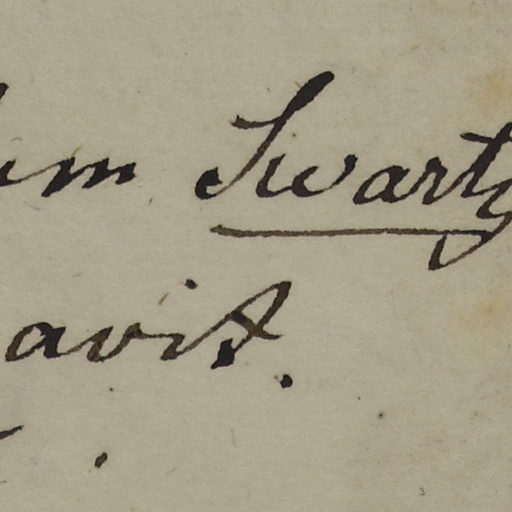 um Swartz
avit.